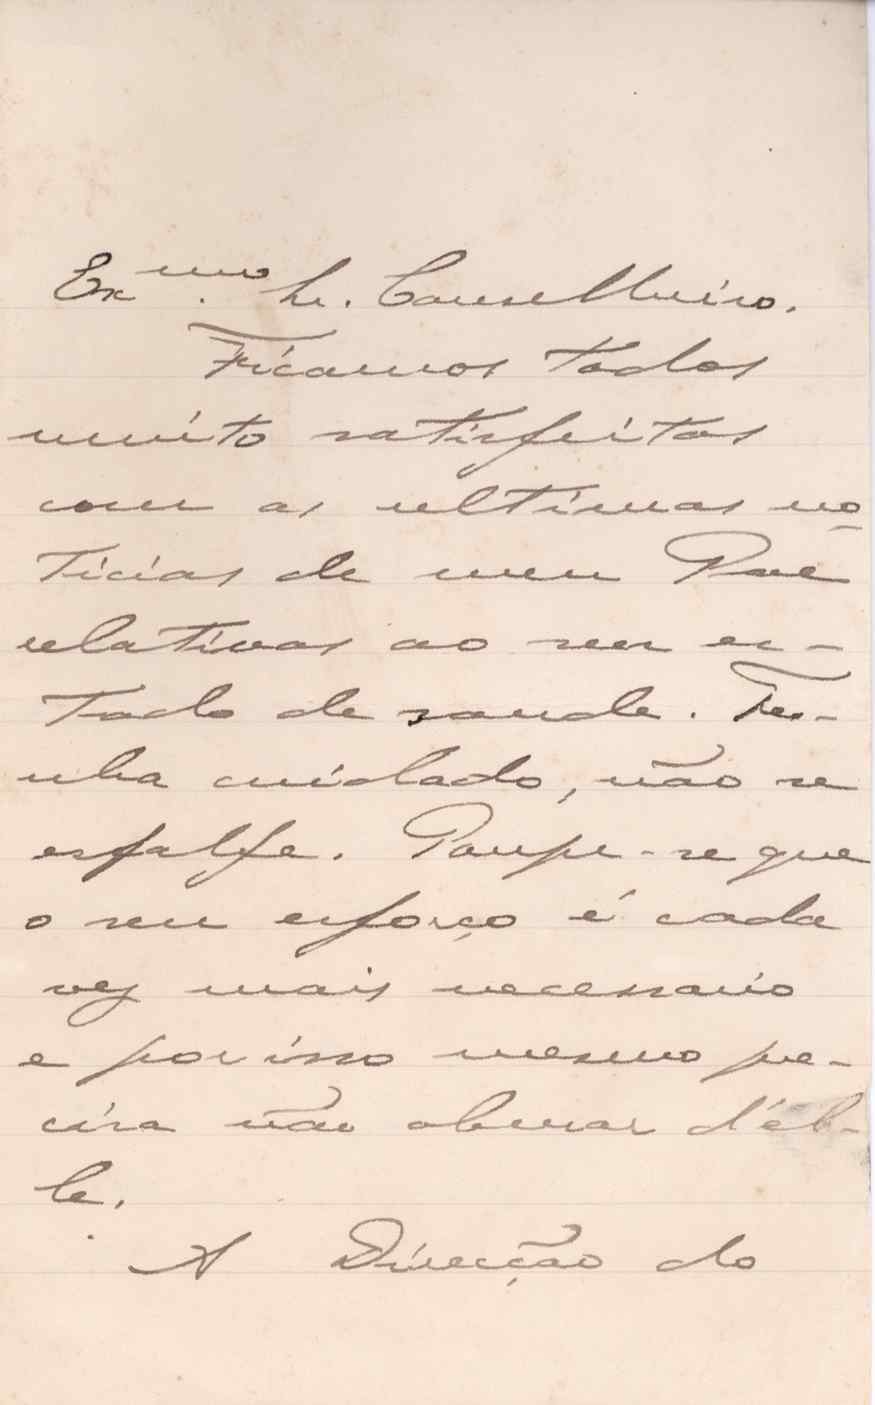 Exmo. Sr. Conselheiro.
Ficamos todos
muito satisfeitos
com as ultimas no
ticias de meu Pae
relativas ao seu es-
tado de saude. Te-
nha cuidado, não se
esfalfe. Poupe-se que
o seu esforço é cada
vez mais necessario
e porisso mesmo pre-
cisa não abusar d'él-
le.
A Direcção do